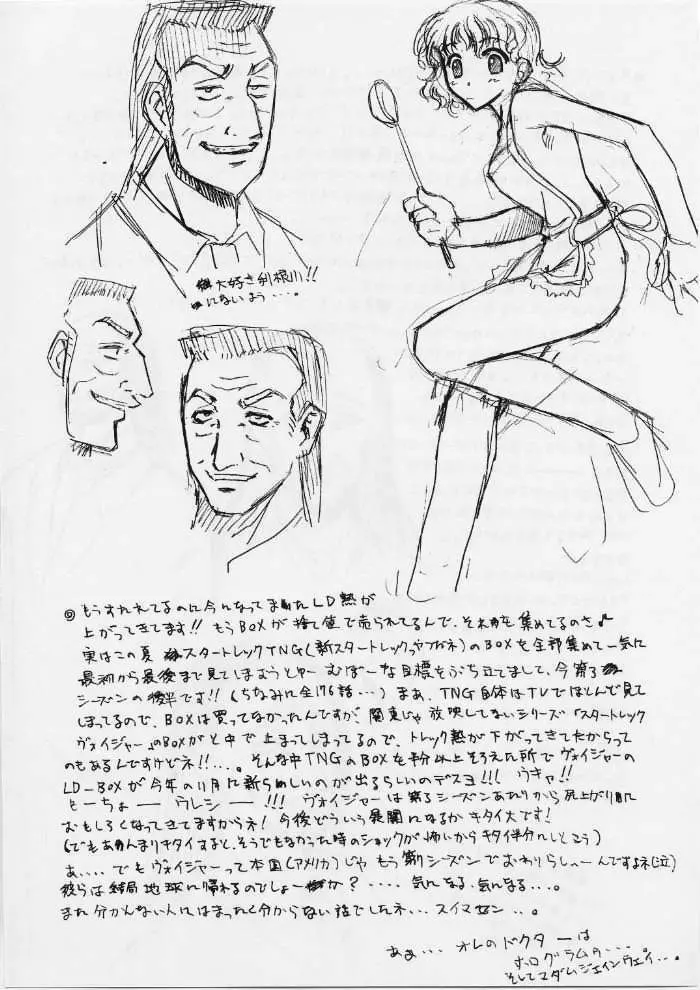 大好き利根川!!
にないよう…。
◎もうすたれてるのに今になってまたLD熱が
上がってきてます!! もうBOXが捨て値で売られてるんで、それを集めてるのさ♪
実はこの夏 スタートレックTNG(新スタートレックってやつがネ)のBOXを全部集めて一気に
最初から最後まで見てしまおうとゆー むぼーな目標をぶち立てまして、今第5
シーズンの後半です!!(ちなみに全176話…)まあ、TNG自体はTVでほとんど見て
しまってるので、BOXは買ってなかったんですが、関東じゃ放映してないシリーズ「スタートレック
ヴォイジャー」のBOXがと中で止まってしまってるので、トレック熱が下がってきてたからって
のもあるんですけどネ!!…。そんな中TNGのBOXを半分以上そろえた所でヴォイジャーの
LD-BOXが今年の11月に新らしいのが出るらしいのデスヨ!!! ウキャ!!
とーちょー ウレシー!!! ヴォイジャーは第3シーズンあたりから尻上がりに
おもしろくなってきてますからネ! 今後どういう展開になるか キタイ大です!
(でもあんまりキタイすると、そうでもなかった時のショックが怖いからキタイ半分にしとこう)
あ、… でもヴォイジャーって本国(アメリカ)じゃ もう第7シーズンでおわりらしいーんですよネ(泣)
彼らは結局地球に帰れるのでしょーか?…. 気になる、気になる…。
また分かんない人にはまったく分からない話でしたネ…スイマセン…。
あぁ… オレのドクターは
ホログラムの…。
そしてマダムジェインウェイ…。